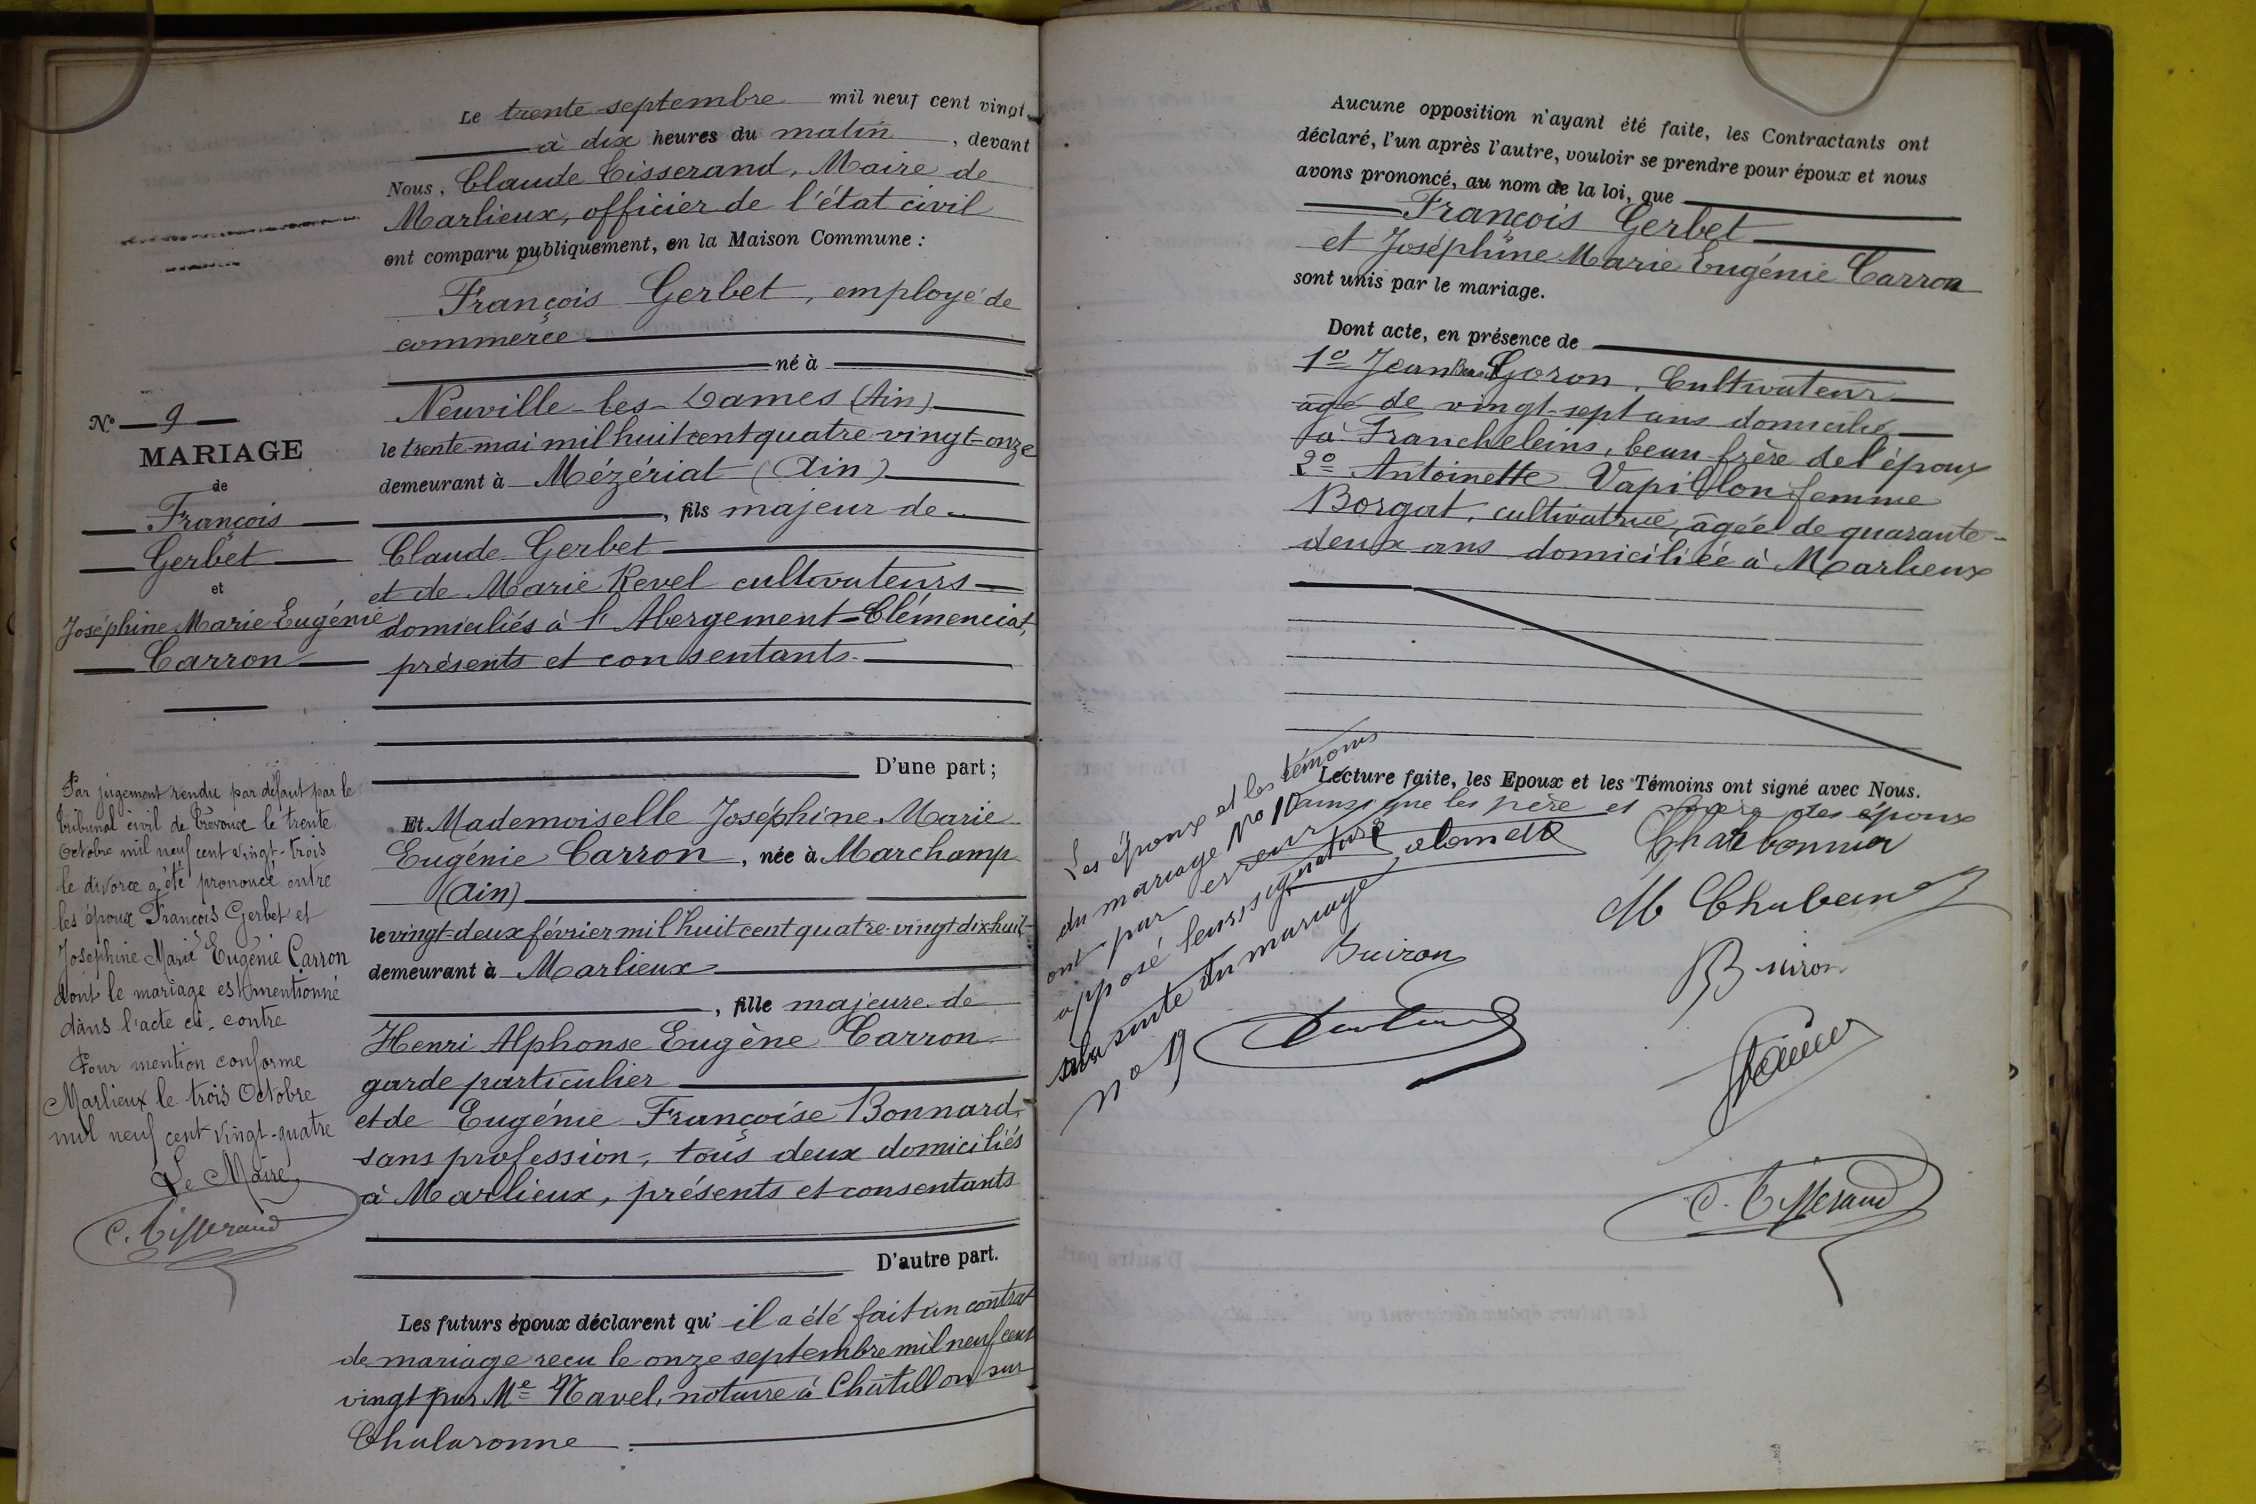 Le trente septembre mil neuf cent vingt
à dix heures du matin, devant
Nous, Claude Tisserand, Maire de
Marlieux, officier de l'état civil
ont comparu publiquement, en la Maison Commune :
François Gerbet, employé de
commerce
né à
Neuville-les-Dames (Ain)
le trente mai mil huit cent quatre-vingt-onze
demeurant à Mézériat (Ain)
, fils majeur de
Claude Gerbet
et de Marie Revel cultivateurs
domiciliés à l'Abergement-Clémenciat,
présents et consentants.
D'une part ;
Et Mademoiselle Joséphine Marie
Eugénie Carron, née à Marchamp
(Ain)
le vingt-deux février mil huit cent quatre-vingt dix-huit
demeurant à Marlieux
, fille majeure de
Henri Alphonse Eugène Carron
garde particulier
et de Eugénie Françoise Bonnard,
sans profession, tous deux domiciliés
à Marlieux, présents et consentants
D'autre part.
Les futurs époux déclarent qu'il a été fait un contrat
de mariage reçu le onze septembre mil neuf cent
vingt par Me Navel, notaire à Châtillon sur
Chalaronne.
N° 9
MARIAGE
de
François
Gerbet
et
Joséphine Marie Eugénie
Carron
Par jugement rendu par défaut par le
tribunal civil de Trévoux le trente
Octobre mil neuf cent vingt-trois
le divorce a été prononcé entre
les époux François Gerbet et
Joséphine Marie Eugénie Carron
dont le mariage est mentionné
dans l'acte ci-contre
Pour mention conforme
Marlieux le trois Octobre
mil neuf cent vingt-quatre
Le Maire
C. Tisserand
Aucune opposition n'ayant été faite, les Contractants ont
déclaré, l'un après l'autre, vouloir se prendre pour époux et nous
avons prononcé, au nom de la loi, que
François Gerbet
et Joséphine Marie Eugénie Carron
sont unis par le mariage.
Dont acte, en présence de
1° Jean Goron, Cultivateur
âgé de vingt-sept ans domicilié
à Francheleins, beau frère de l'époux
2° Antoinette Vapillon femme
Borgat, cultivatrice, âgée de quarante-
deux ans domiciliée à Marlieux
Lecture faite, les Epoux et les Témoins ont signé avec Nous.
ainsi que les père et mère des époux
Les époux et les témoins
du mariage N° 10
ont par erreur
apposé leurs signatures
à la suite du mariage
N° 9
Charbonnier
Buiron
B uiron
C. Tisserand